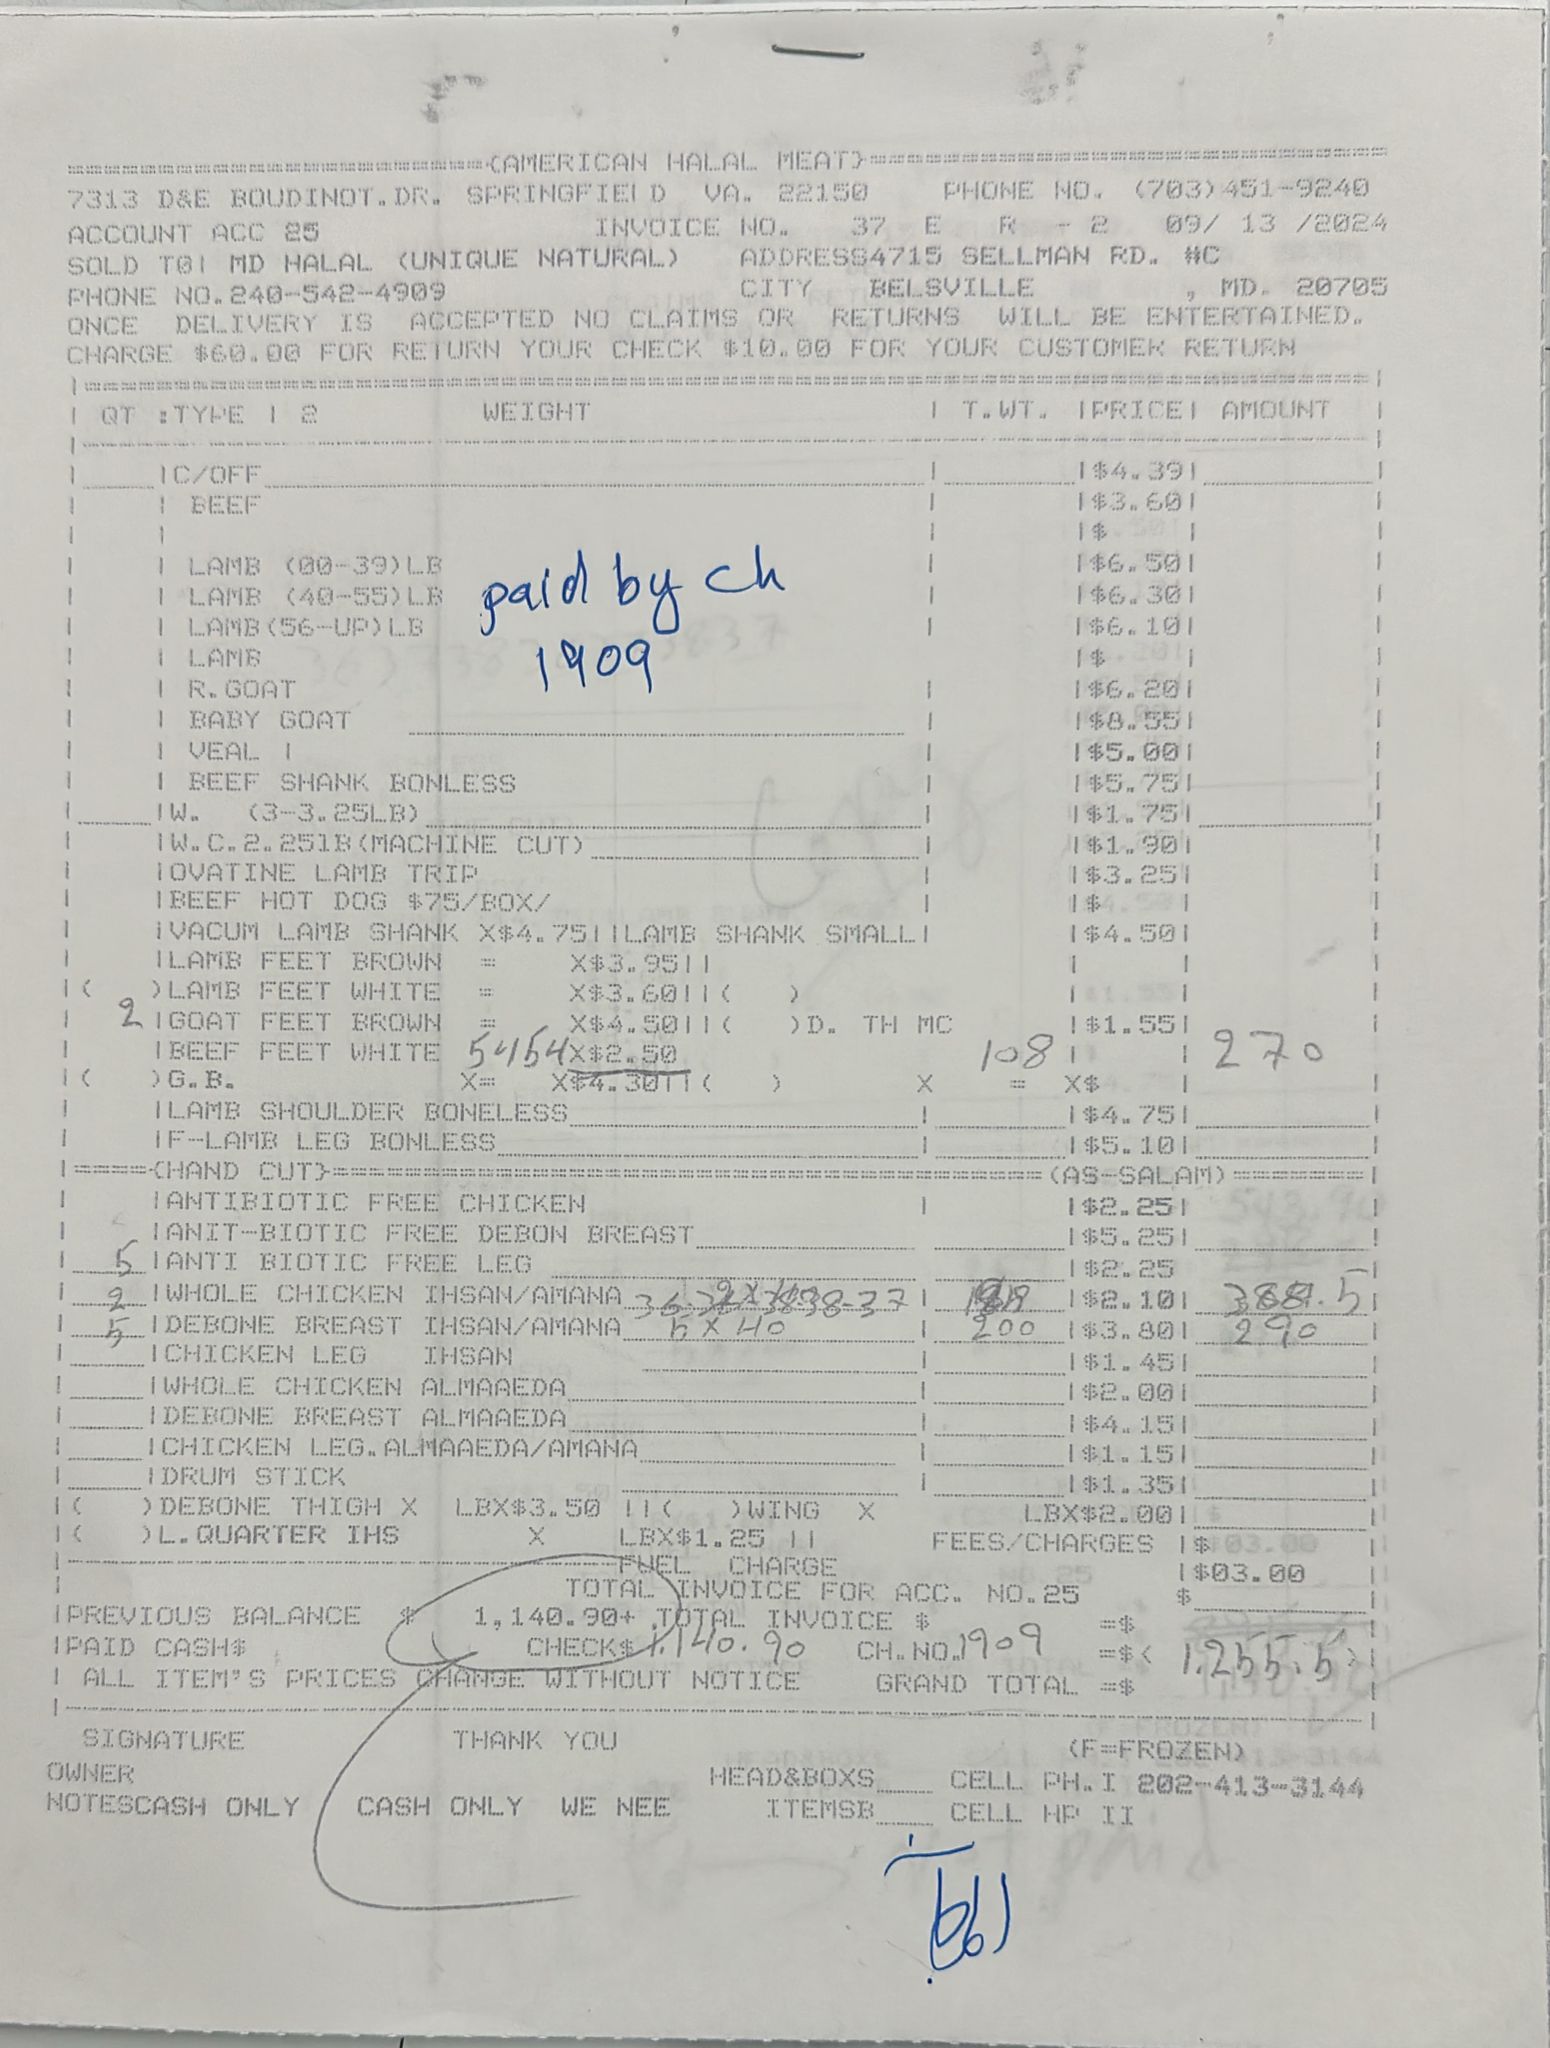 (AMERICAN HALAL MEAT)
7313 D&E BOUDINOT.DR. SPRINGFIELD VA. 22150 PHONE NO. (703)451-9240
ACCOUNT ACC 25 INVOICE NO. 37 E R - 2 09/ 13 /2024
SOLD TO| MD HALAL (UNIQUE NATURAL) ADDRESS4715 SELLMAN RD. #C
PHONE NO.240-542-4909 CITY BELSVILLE , MD. 20705
ONCE DELIVERY IS ACCEPTED NO CLAIMS OR RETURNS WILL BE ENTERTAINED.
CHARGE $60.00 FOR RETURN YOUR CHECK $10.00 FOR YOUR CUSTOMER RETURN
| QT :TYPE | 2 WEIGHT | T.WT. |PRICE| AMOUNT |
|C/OFF |$4.39|
| BEEF |$3.60|
| |$ |
| LAMB (00-39)LB |$6.50|
| LAMB (40-55)LB |$6.30|
paid by ch
| LAMB(56-UP)LB |$6.10|
| LAMB |$ |
1909
| R.GOAT |$6.20|
| BABY GOAT |$8.55|
| VEAL | |$5.00|
| BEEF SHANK BONLESS |$5.75|
|W. (3-3.25LB) |$1.75|
|W.C.2.25lB(MACHINE CUT) |$1.90|
|OVATINE LAMB TRIP |$3.25|
|BEEF HOT DOG $75/BOX/ |$ |
|VACUM LAMB SHANK X$4.75||LAMB SHANK SMALL| |$4.50|
|LAMB FEET BROWN = X$3.95||
|( )LAMB FEET WHITE = X$3.60||( )
2 |GOAT FEET BROWN = X$4.50||( )D. TH MC |$1.55|
|BEEF FEET WHITE 54 54 X$2.50 108 | | 270
|( )G.B. X= X$4.30||( ) X = X$ |
|LAMB SHOULDER BONELESS |$4.75|
|F-LAMB LEG BONLESS |$5.10|
|=====(HAND CUT)=====(AS-SALAM)=====|
|ANTIBIOTIC FREE CHICKEN |$2.25|
|ANIT-BIOTIC FREE DEBON BREAST |$5.25|
5 |ANTI BIOTIC FREE LEG |$2.25
2 |WHOLE CHICKEN IHSAN/AMANA |$2.10|
5 |DEBONE BREAST IHSAN/AMANA 5 X 40 200 |$3.80| 290
|CHICKEN LEG IHSAN |$1.45|
|WHOLE CHICKEN ALMAAEDA |$2.00|
|DEBONE BREAST ALMAAEDA |$4.15|
|CHICKEN LEG.ALMAAEDA/AMANA |$1.15|
|DRUM STICK |$1.35|
|( )DEBONE THIGH X LBX$3.50 ||( )WING X LBX$2.00|
|( )L.QUARTER IHS X LBX$1.25 || FEES/CHARGES |$
FUEL CHARGE |$03.00
TOTAL INVOICE FOR ACC. NO.25 $
|PREVIOUS BALANCE $ 1,140.90+ .TOTAL INVOICE $ =$
|PAID CASH$ CHECK$ 1.140.90 CH.NO. 1909 =$( 1.255.5 )
| ALL ITEM'S PRICES CHANGE WITHOUT NOTICE GRAND TOTAL =$
SIGNATURE THANK YOU (F=FROZEN)
OWNER HEAD&BOXS CELL PH.I 202-413-3144
NOTESCASH ONLY CASH ONLY WE NEE ITEMSB CELL HP II